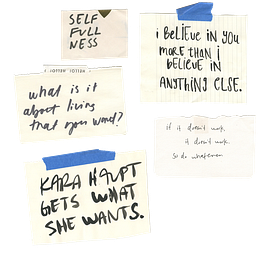 SELF
FULL
NESS
i BELiEVE iN YOU
MORE THAN i
BELiEVE iN
ANYTHiNG ELSE.
what is it
about living
that you want?
if it doesn't work,
it doesn't work.
so do whatever
KARA HAUPT
GETS WHAT
SHE WANTS.